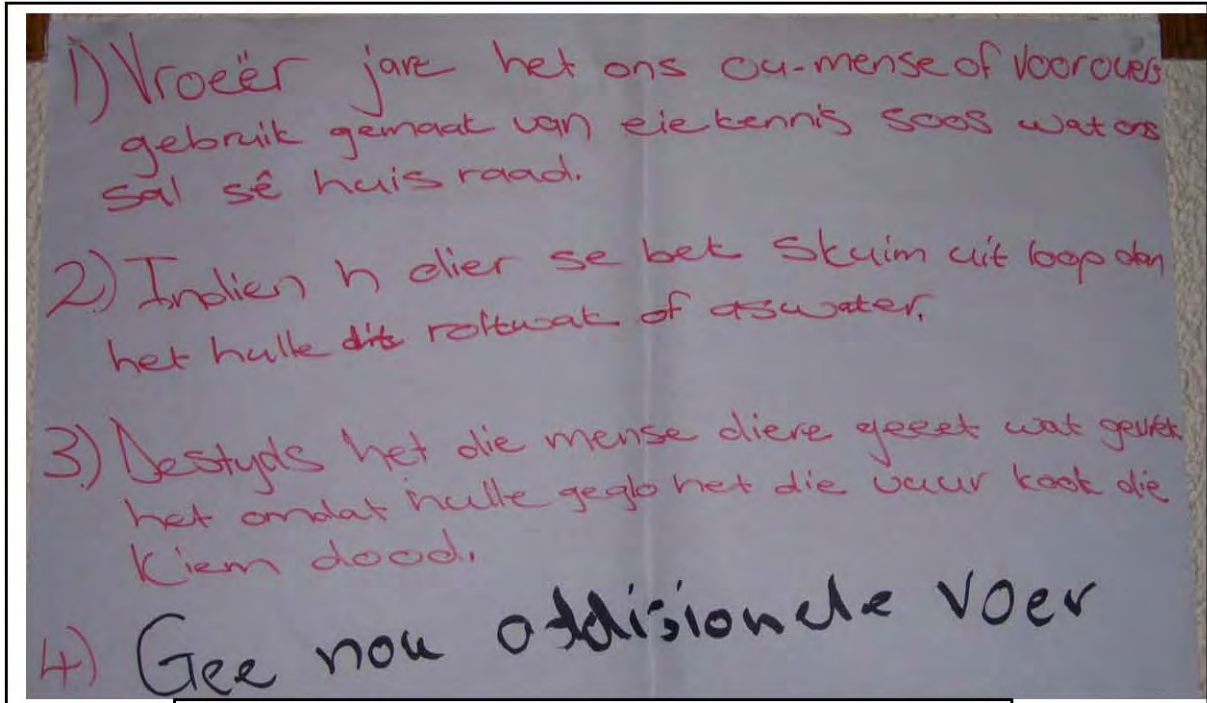 1) Vroeër jare het ons ou-mense of voorouers
gebruik gemaak van eie kennis soos wat ons
sal sê huis raad.
2.) Indien 'n dier se bek skuim uit loop dan
het hulle dit of aswater.
3.) Destyds het die mense diere geeet wat gevrek
het omdat hulle geglo het die vuur kook die
kiem dood.
4.) Gee nou addisionele voer